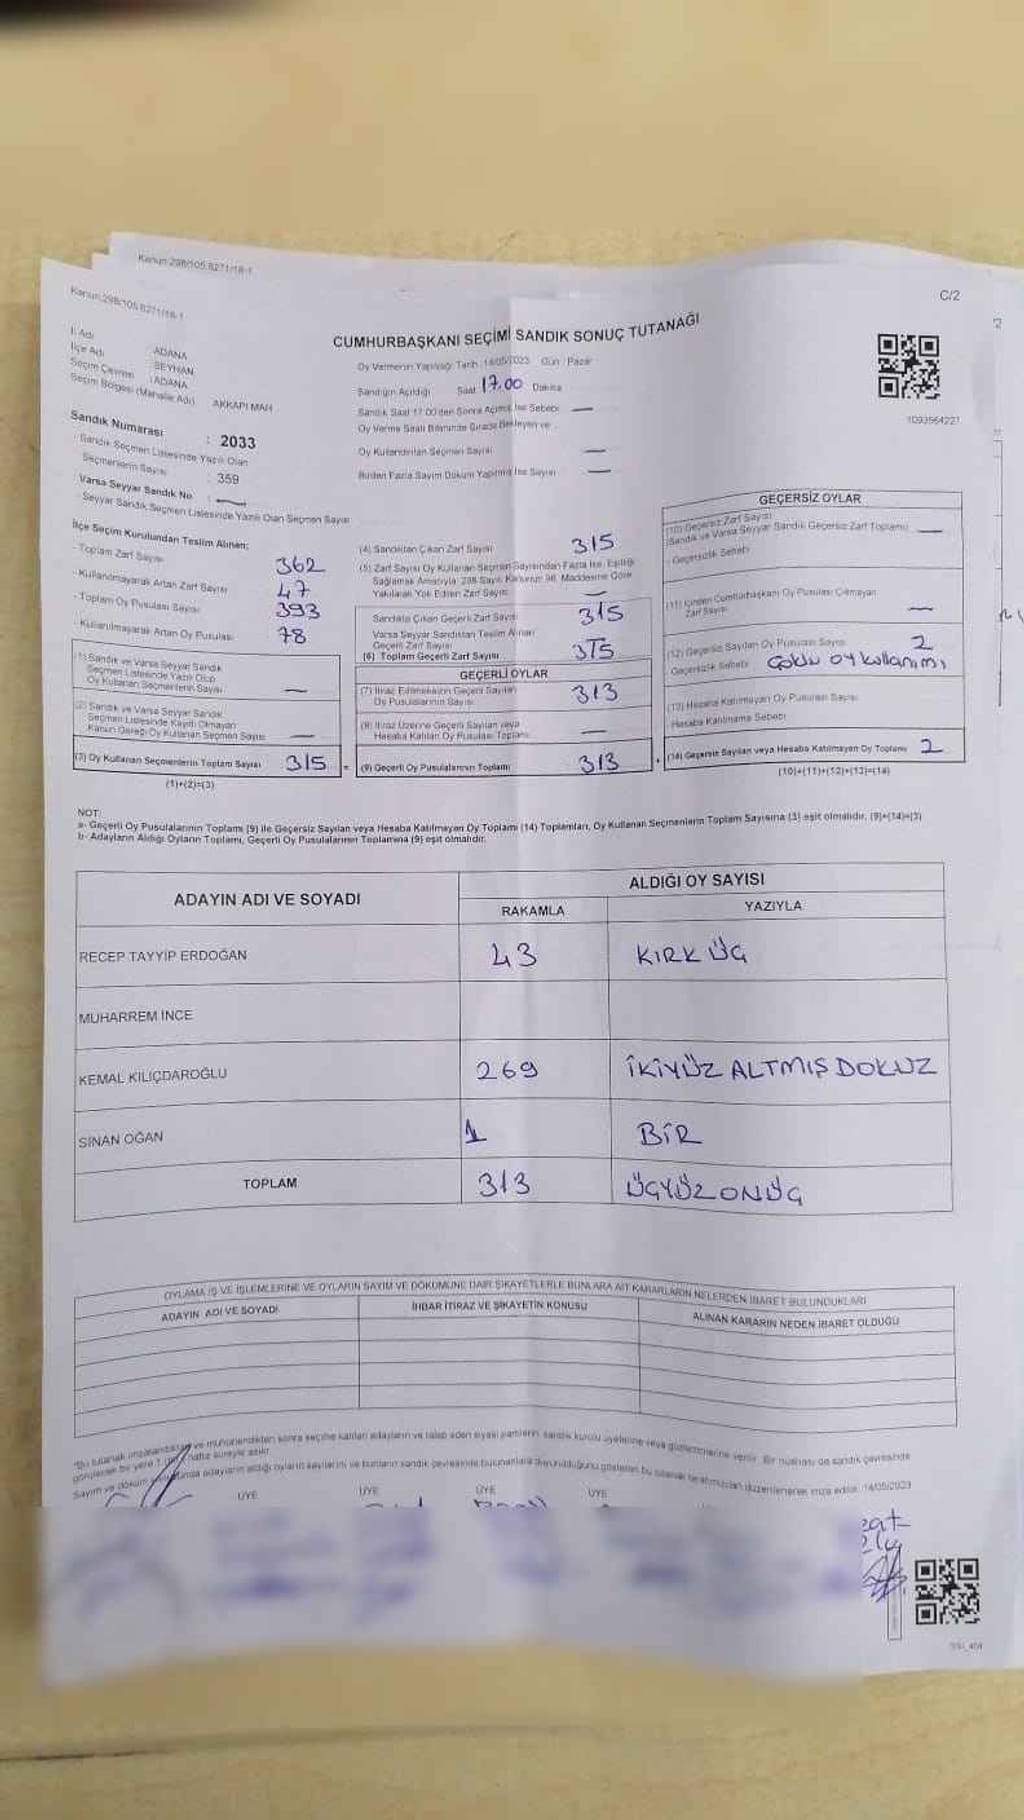 Kanun:298/105.6271/18-1
Kanun:298/105.6271/18-1
C/2
CUMHURBAŞKANI SEÇİMİ SANDIK SONUÇ TUTANAĞI
İl Adı : ADANA
İlçe Adı : SEYHAN
Seçim Çevresi : ADANA
Seçim Bölgesi (Mahalle Adı) AKKAPI MAH
Sandık Numarası : 2033
Sandık Seçmen Listesinde Yazılı Olan
Seçmenlerin Sayısı : 359
Varsa Seyyar Sandık No :
Seyyar Sandık Seçmen Listesinde Yazılı Olan Seçmen Sayısı
Oy Vermenin Yapıldığı Tarih : 14/05/2023 Gün : Pazar
Sandığın Açıldığı Saat 17.00 Dakika
Sandık Saat 17:00'den Sonra Açılmış İse Sebebi —
Oy Verme Saati Bitiminde Sırada Bekleyen ve
Oy Kullandırılan Seçmen Sayısı —
Birden Fazla Sayım Döküm Yapılmış İse Sayısı —
1093564227
İlçe Seçim Kurulundan Teslim Alınan:
- Toplam Zarf Sayısı 362
- Kullanılmayarak Artan Zarf Sayısı 47
- Toplam Oy Pusulası Sayısı 393
- Kullanılmayarak Artan Oy Pusulası 78
(1) Sandık ve Varsa Seyyar Sandık
Seçmen Listesinde Yazılı Olup
Oy Kullanan Seçmenlerin Sayısı —
(2) Sandık ve Varsa Seyyar Sandık
Seçmen Listesinde Kayıtlı Olmayan
Kanun Gereği Oy Kullanan Seçmen Sayısı —
(3) Oy Kullanan Seçmenlerin Toplam Sayısı 315
(1)+(2)=(3)
(4) Sandıktan Çıkan Zarf Sayısı 315
(5) Zarf Sayısı Oy Kullanan Seçmen Sayısından Fazla İse, Eşitliği
Sağlamak Amacıyla 298 Sayılı Kanunun 98. Maddesine Göre
Yakılarak Yok Edilen Zarf Sayısı —
Sandıkta Çıkan Geçerli Zarf Sayısı 315
Varsa Seyyar Sandıktan Teslim Alınan
Geçerli Zarf Sayısı
(6) Toplam Geçerli Zarf Sayısı 315
GEÇERLİ OYLAR
(7) İtiraz Edilmeksizin Geçerli Sayılan
Oy Pusulalarının Sayısı 313
(8) İtiraz Üzerine Geçerli Sayılan veya
Hesaba Katılan Oy Pusulası Toplamı —
(9) Geçerli Oy Pusulalarının Toplamı 313
GEÇERSİZ OYLAR
(10) Geçersiz Zarf Sayısı
(Sandık ve Varsa Seyyar Sandık Geçersiz Zarf Toplamı) —
Geçersizlik Sebebi
(11) İçinden Cumhurbaşkanı Oy Pusulası Çıkmayan
Zarf Sayısı —
(12) Geçersiz Sayılan Oy Pusulası Sayısı 2
Geçersizlik Sebebi Çoklu oy kullanımı
(13) Hesaba Katılmayan Oy Pusulası Sayısı
Hesaba Katılmama Sebebi
(14) Geçersiz Sayılan veya Hesaba Katılmayan Oy Toplamı 2
(10)+(11)+(12)+(13)=(14)
NOT:
a- Geçerli Oy Pusulalarının Toplamı (9) ile Geçersiz Sayılan veya Hesaba Katılmayan Oy Toplamı (14) Toplamları, Oy Kullanan Seçmenlerin Toplam Sayısına (3) eşit olmalıdır. (9)+(14)=(3)
b- Adayların Aldığı Oyların Toplamı, Geçerli Oy Pusulalarının Toplamına (9) eşit olmalıdır.
ADAYIN ADI VE SOYADI ALDIĞI OY SAYISI
RAKAMLA YAZIYLA
RECEP TAYYİP ERDOĞAN 43 KIRK ÜÇ
MUHARREM İNCE
KEMAL KILIÇDAROĞLU 269 İKİYÜZ ALTMIŞ DOKUZ
SİNAN OĞAN 1 BİR
TOPLAM 313 ÜÇYÜZ ONÜÇ
OYLAMA İŞ VE İŞLEMLERİNE VE OYLARIN SAYIM VE DÖKÜMÜNE DAİR ŞİKAYETLERLE BUNLARA AİT KARARLARIN NELERDEN İBARET BULUNDUKLARI
ADAYIN ADI VE SOYADI İHBAR İTİRAZ VE ŞİKAYETİN KONUSU ALINAN KARARIN NEDEN İBARET OLDUĞU
"Bu tutanak imzalandıktan ve mühürlendikten sonra seçime katılan adayların ve talep eden siyasi partilerin sandık kurulu üyelerine veya gözlemcilerine verilir. Bir nüshası de sandık çevresinde
görülecek bir yere 1 gün süreyle asılır.
Sayım ve döküm sonucunda adayların aldığı oyların sayılarını ve bunların sandık çevresinde bulunanlara duyurulduğunu gösteren bu tutanak tarafımızdan düzenlenerek imza edildi. 14/05/2023
ÜYE ÜYE ÜYE ÜYE